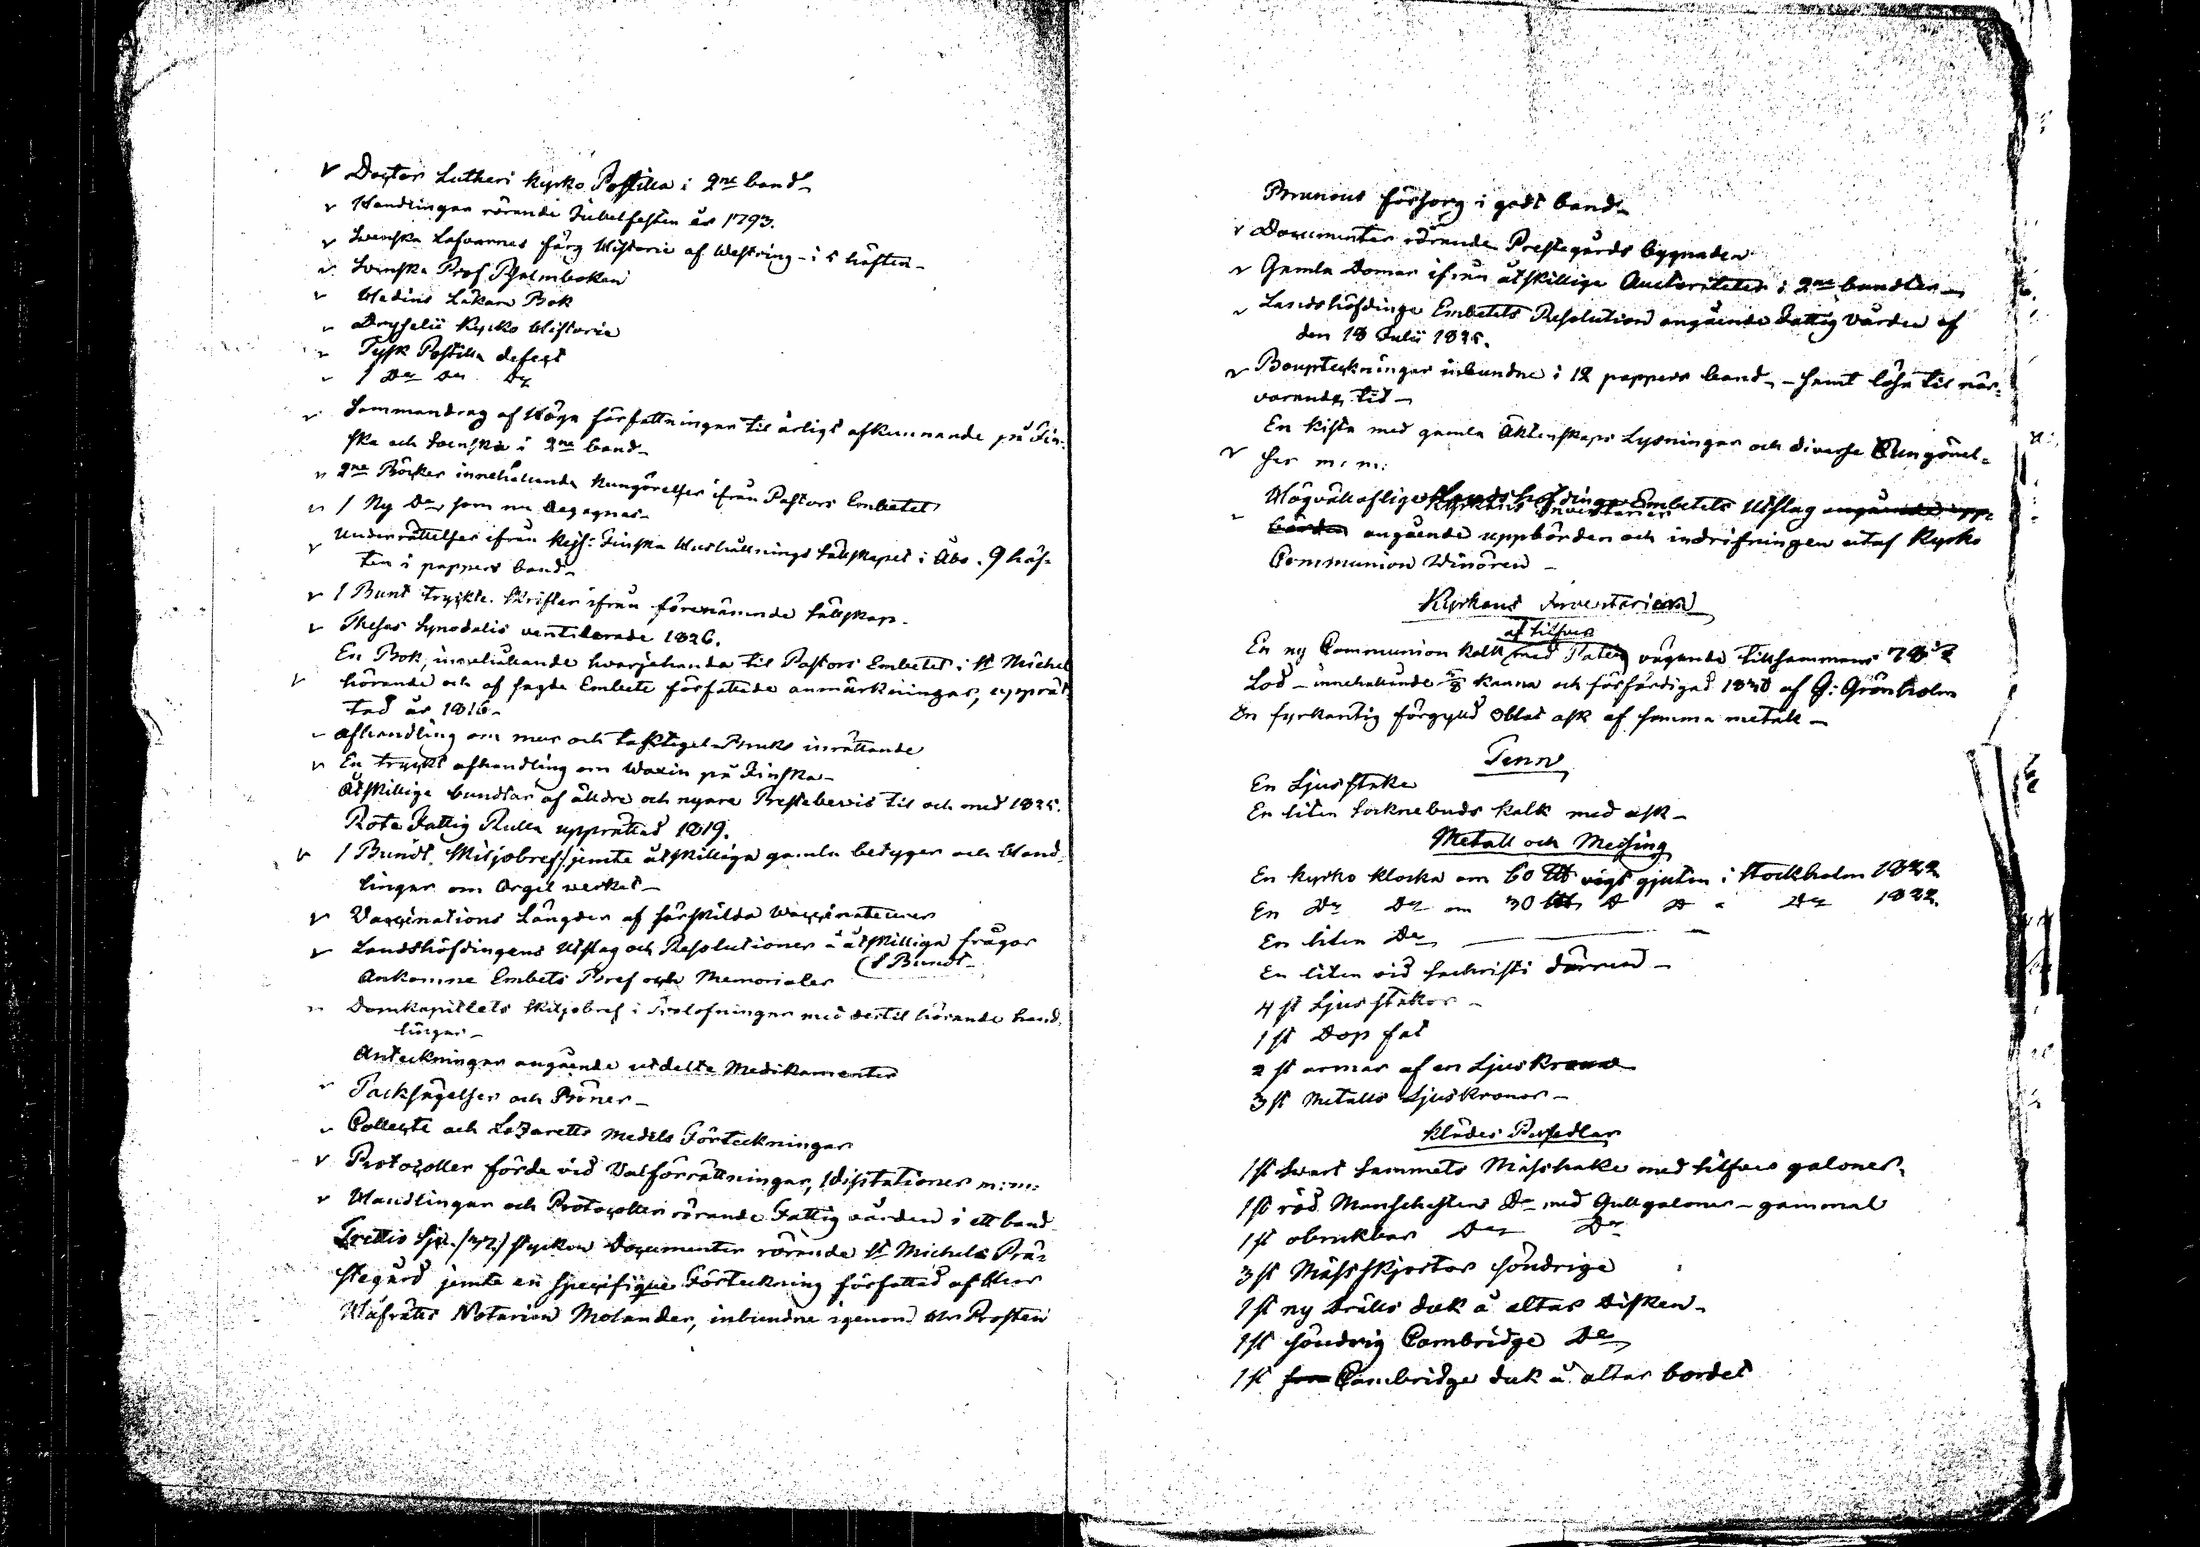 v Doctor Lutheri Kyrko Postilla i 2ne band
v Handlingar rörande Jubelfesten år 1793.
v Svenska Lafvarnes färg Historie af Westring - i 5 häften -
v Svenska Prof Psalmboken
v Hedins Läkare Bok
v Dryselii Kyrko Historie
v Tysk Postilla defect
v 1 Do Do Do
v Sammandrag af Höga författningar til årligt afkunnande på Fin-
ska och Svenska i 2ne band -
v 2ne Böcker innehålande Kungörelser ifrån Pastors Embetet
v 1 Ny Do som nu begagnas -
v Underrättelser ifrån Kejs: Finska Hushållnings Sällskapet i Åbo. 9 häf-
ten i pappers band -
v 1 Bunt tryckte skrifter ifrån förenämnde Sällskap.
v Theses Synodalis ventilerade 1826.
En Bok, innehålande hvarjehanda til Pastors Embetet i St Michel
v hörande och af sagde Embete författade anmärkningar, upprät
tad år 1816 -
v Afhandling om mur och taktegel-Bruks inrättande
v En tryckt afhandling om Waxin på Finska -
Åtskillige bundtar af äldre och nyare Prestebevis til och med 1835.
Rote Fattig Rulla upprättad 1819.
v 1 Bundt Skiljobref jemte åtskilliga gamla betyger och Hand
lingar om Orgel verket -
v Vaccinations Längder af särskilda Vaccinateurer
v Landshöfdingens Utslag och Resolutioner å åtskilliga frågor
Ankomne Embets Bref och Memorialer (1 Bundt -
v Domkapitlets Skiljobref i Trolofningar med dertil hörande hand
lingar -
Anteckningar angående utdelte Medikamenter
v Tacksägelser och Böner -
v Collecte och Lazaretts medels Förteckningar
v Protocoller förde vid Valförrättningar, Visitationer m: m:
v Handlingar och Protocoller rörande Fattig vården i ett band
Trettio Sju /37/ stycken Documenter rörande St Michels Prä-
stegård jemte en specifique Förteckning författad af Herr
Häfrätts Notarien Molander, inbundne igenom Hr Prosten
Brunous försorg i godt band -
v Documenter rörande Prestegårds bygnaden
v Gamla Domar ifrån åtskillige Auctoriteter i 2ne bundter -
v Landshöfdinge Embetets Resolution angående Fattig Vården af
den 18 Julii 1835.
v Boupteckningar inbundne i 12 pappers band, - samt löse til när-
varande tid -
En kista med gamla Äktenskaps Lysningar och diverse Kungörel-
v ser m: m:
Högvälloflige Landshöfdinge Embetets Utslag angående upp-
Kyrkans Inventarier
v börden angående uppbörden och indrifningen utaf Kyrko
Communion Winören -
Kyrkans Inventarier
af silfver
En ny Communion kalk med Paten vägande tillsammans
Lod - innehålande kanna och förfärdigad 1830 af G: Grönholm
En fyrkantig förgylld Oblat ask af samma metall -
Tenn
En Ljusstake
En liten Socknebuds kalk med ask -
Metall och Messing
En kyrko klocka om 60 vigt gjuten i Stockholm 1822
En Do Do om 30 D D " Do 1822.
En liten Do -
En liten vid Sachristi dörren -
4 st Ljusstakar -
1 st Dop fat
2 st armar af en Ljuskrona
3 st Metalls Ljuskronor -
Klädes Persedlar
1 st Svart Sammets Mässhake med Silfver galoner.
1 st röd Manschesters Do med Gullgaloner - gammal
1 st obrukbar Do Do
3 st Mässskjortor söndrige
1 st ny Drälls duk å altar disken -
1 st söndrig Cambridge Do
1 st Cambridge duk å altar bordet